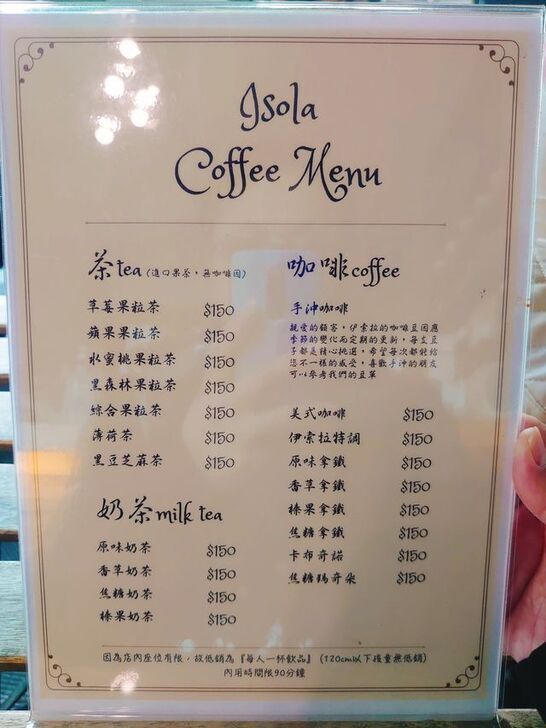 Isola
Coffee Menu
茶tea (進口果茶，無咖啡因)
草莓果粒茶 $150
蘋果果粒茶 $150
水蜜桃果粒茶 $150
黑森林果粒茶 $150
綜合果粒茶 $150
薄荷茶 $150
黑豆芝蔴茶 $150
奶茶milk tea
原味奶茶 $150
香草奶茶 $150
焦糖奶茶 $150
榛果奶茶 $150
咖啡coffee
手沖咖啡
親愛的顧客，伊索拉的咖啡豆因應
季節的變化而定期的更新，每支豆
子都是精心挑選，希望每次都能給
您不一樣的感受，喜歡手沖的朋友
可以參考我們的豆單
美式咖啡 $150
伊索拉特調 $150
原味拿鐵 $150
香草拿鐵 $150
榛果拿鐵 $150
焦糖拿鐵 $150
卡布奇諾 $150
焦糖瑪奇朵 $150
因為店內座位有限，故低銷為『每人一杯飲品』 (120cm以下孩童無低銷)
內用時間限90分鐘